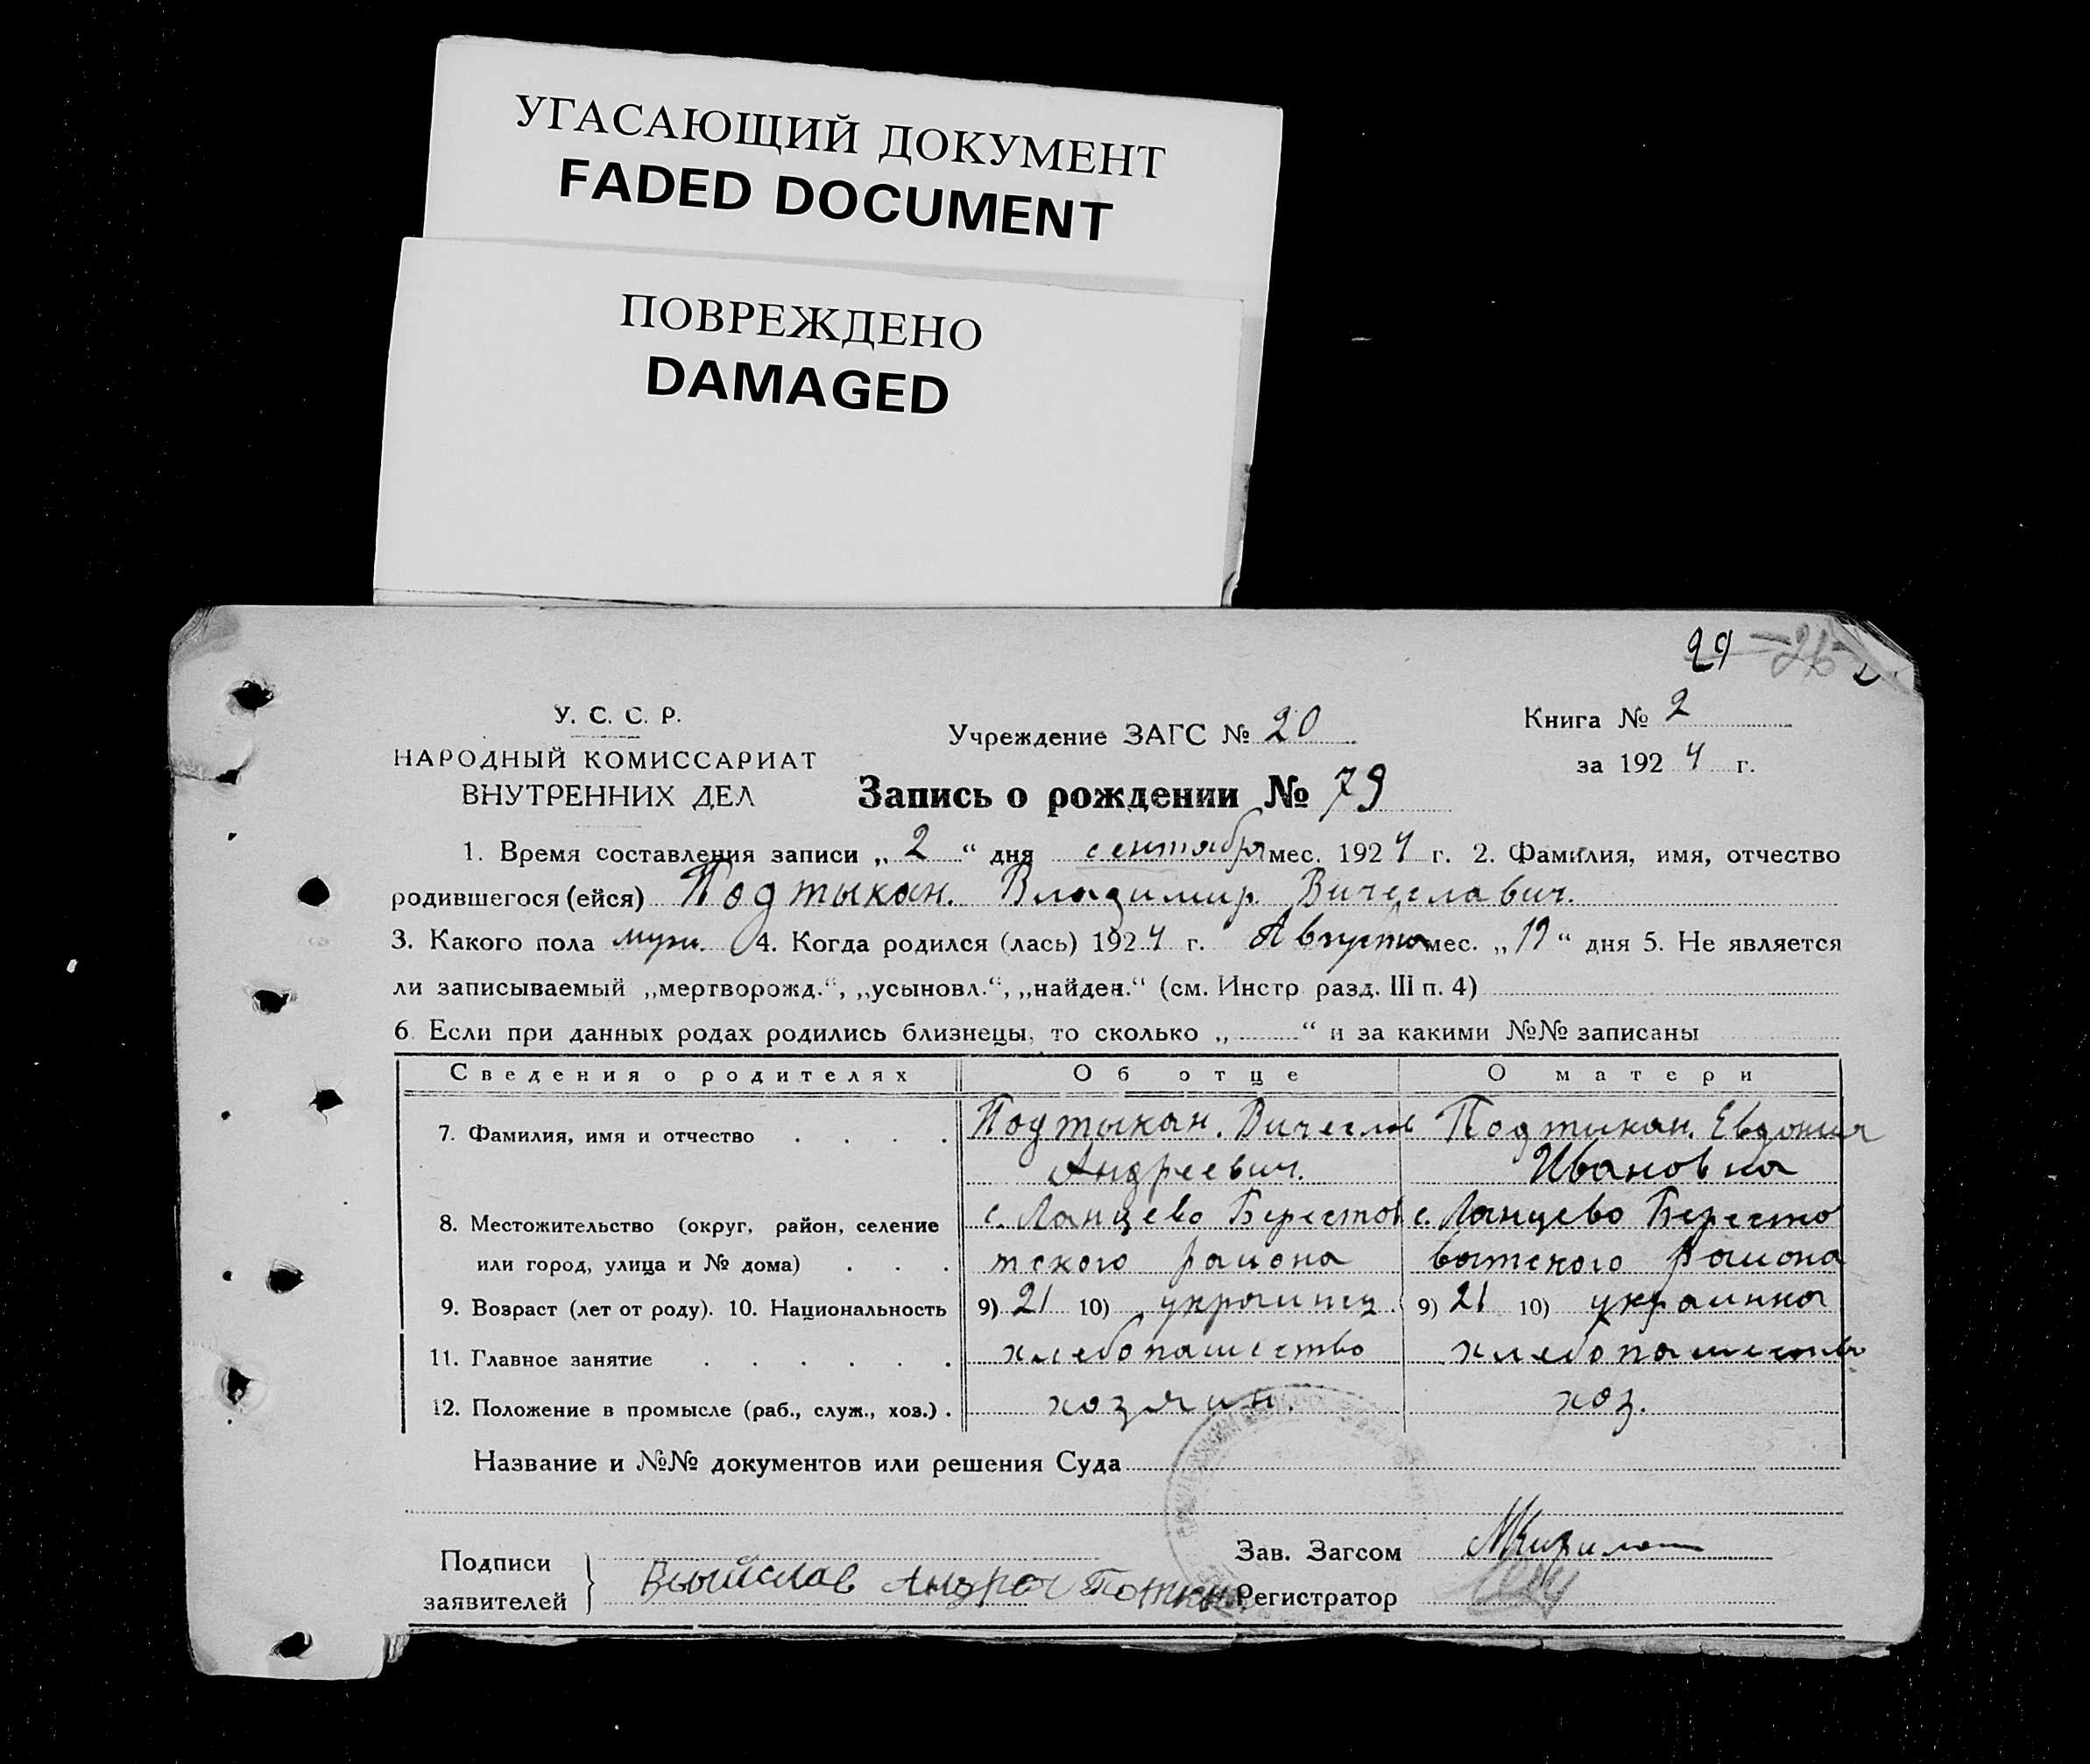 УГАСАЮЩИЙ ДОКУМЕНТ
FADED DOCUMENT
ПОВРЕЖДЕНО
DAMAGED
29 26 2
У. С. С. Р.
НАРОДНЫЙ КОМИССАРИАТ
ВНУТРЕННИХ ДЕЛ
Учреждение ЗАГС № 20
Книга № 2
за 1924 г.
Запись о рождении № 79
1. Время составления записи „2“ дня сентября мес. 1924 г. 2. Фамилия, имя, отчество
родившегося (ейся) Подтыкан. Владимир Вичеславич.
3. Какого пола муж. 4. Когда родился (лась) 1924 г. Августа мес. „19“ дня 5. Не является
ли записываемый „мертворожд.“, „усыновл.“, „найден.“ (см. Инстр разд. III п. 4)
6. Если при данных родах родились близнецы, то сколько „ “ и за какими №№ записаны
Сведения о родителях Об отце О матери
7. Фамилия, имя и отчество . . . . Подтыкан. Вичеслав Подтикан. Евдокия
Андреевич. Ивановна
8. Местожительство (округ, район, селение с. Ланцево Берестов с. Ланцево Бересто
или город, улица и № дома) . . . тского района ватского района
9. Возраст (лет от роду). 10. Национальность 9) 21 10) украинец. 9) 21 10) украинка
11. Главное занятие . . . . . . хлебопашество хлебопашество
12. Положение в промысле (раб., служ., хоз.) . хозяин. хоз.
Название и №№ документов или решения Суда
Подписи
заявителей
Зав. Загсом
Регистратор